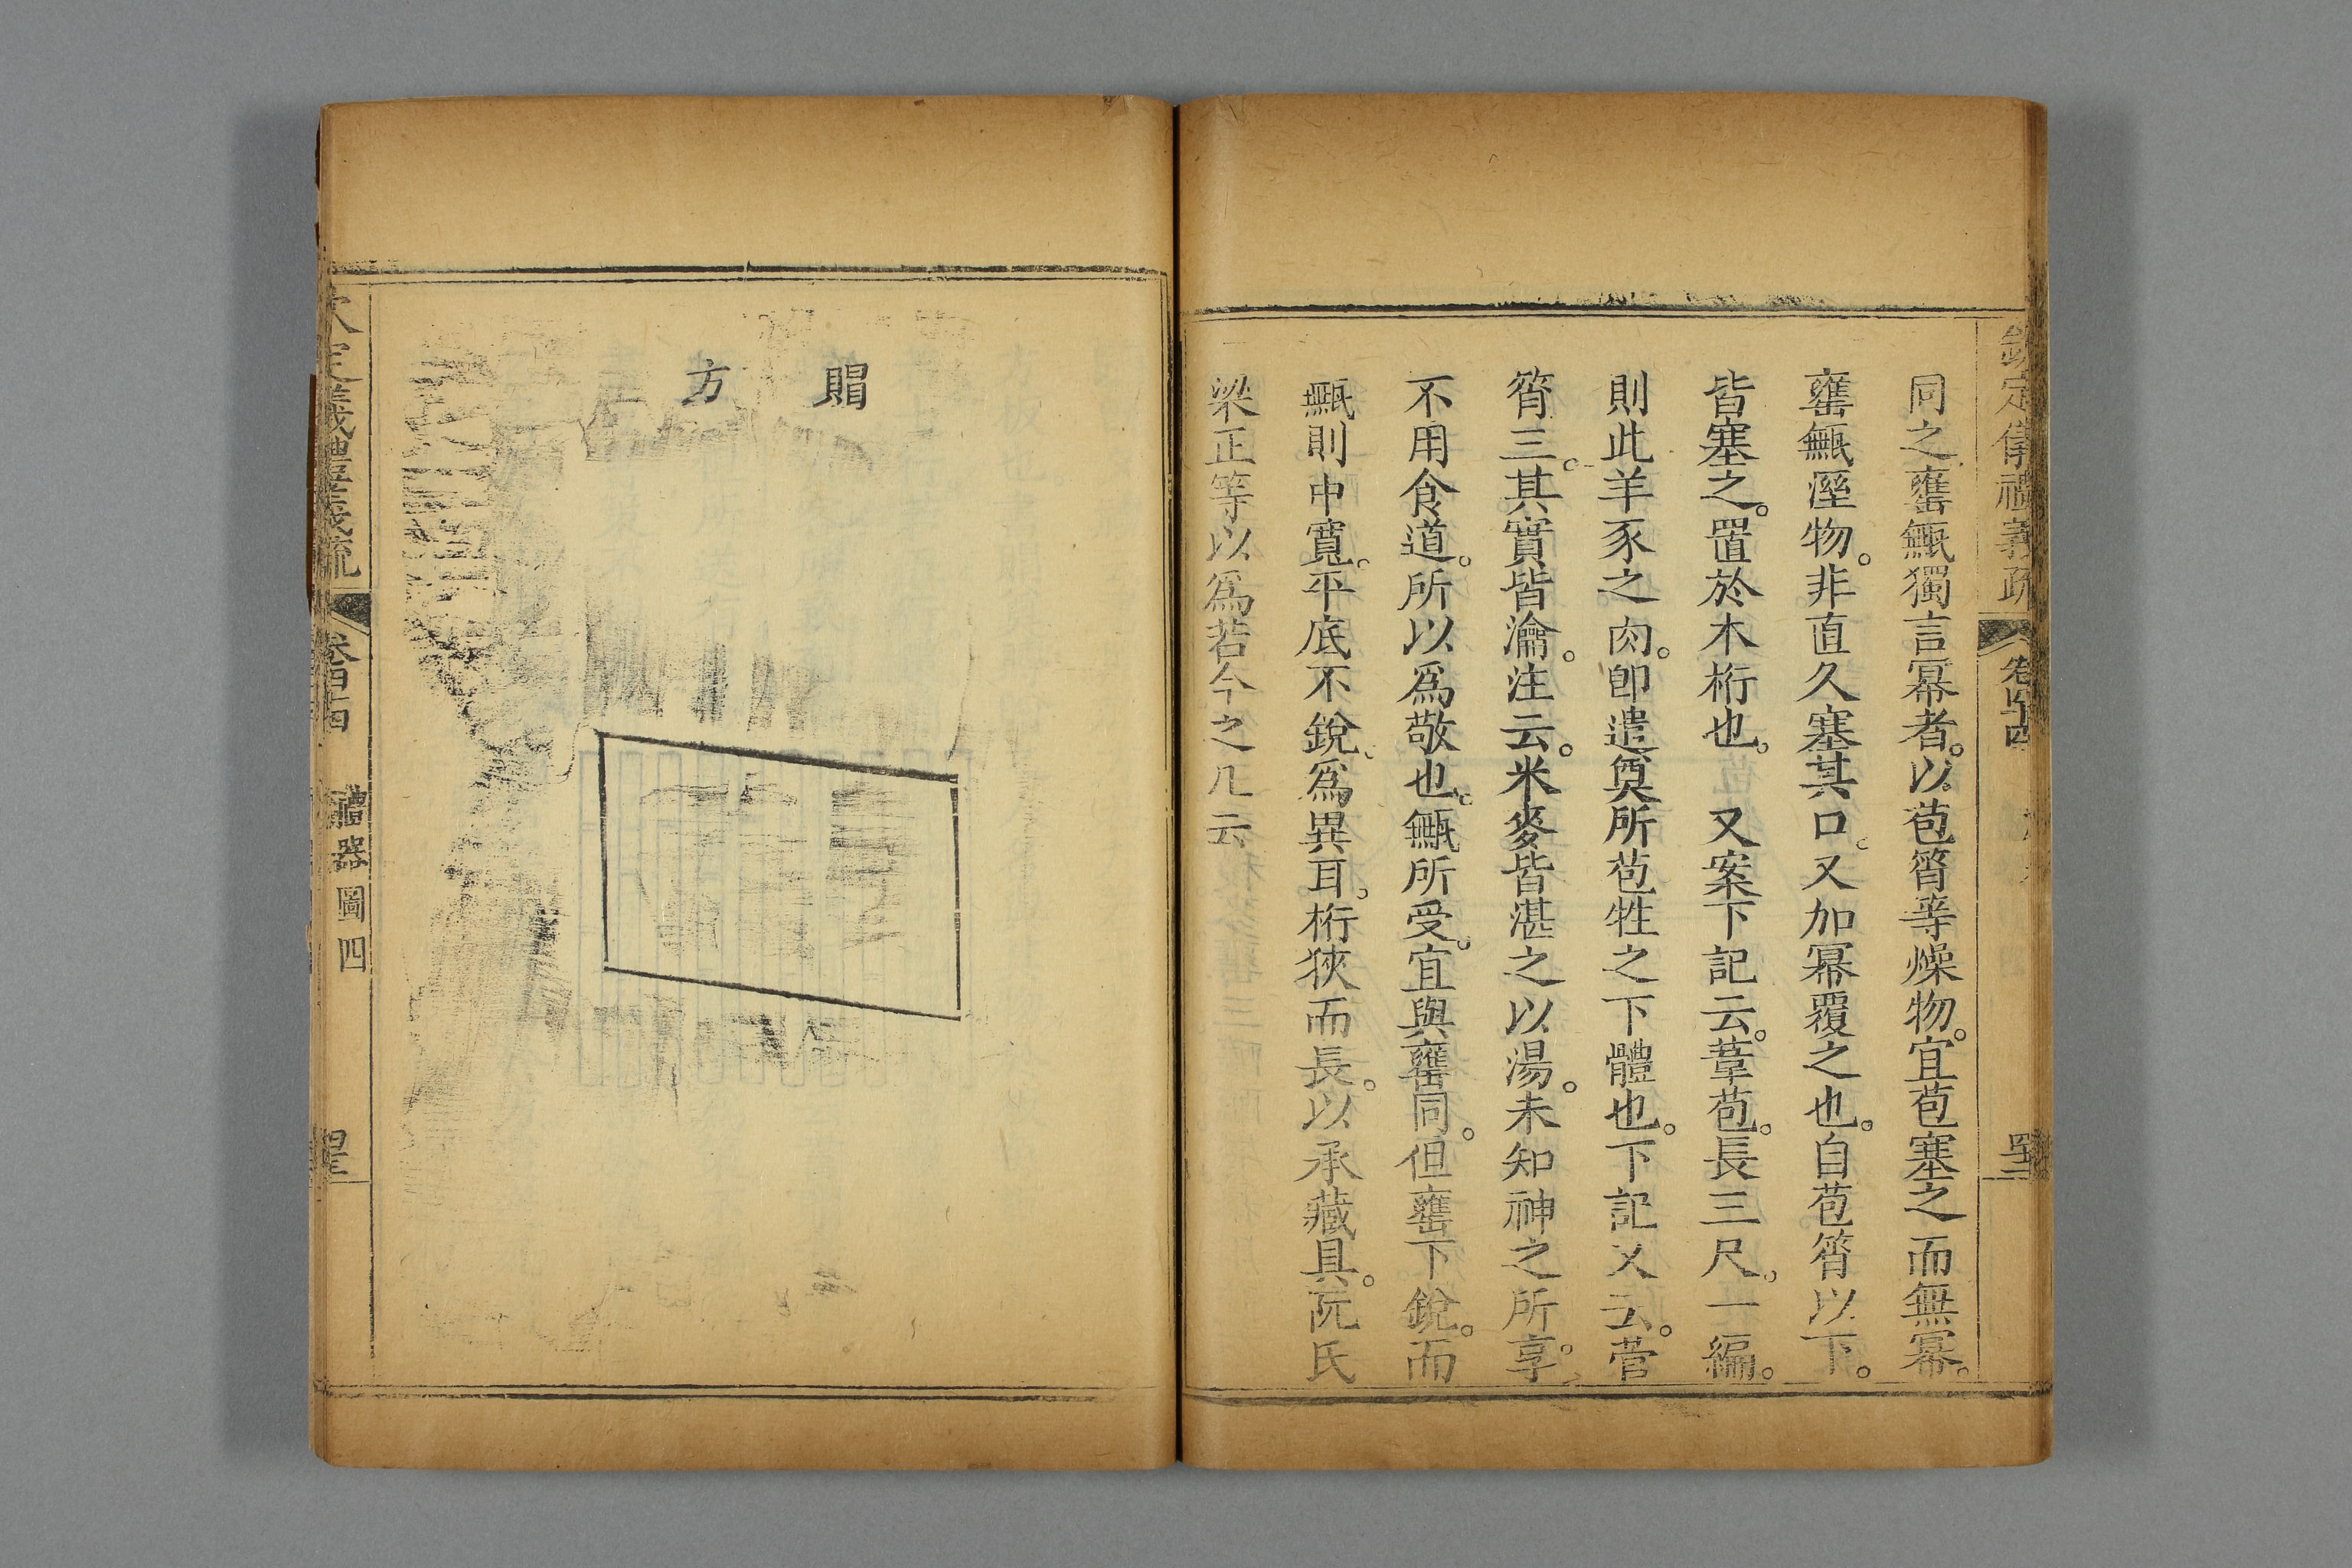 欽定儀禮義疏
卷四十四
同之罋甒獨言冪者。以苞筲等燥物。宜苞塞之而無冪。
罋甒溼物。非直久塞其口。又加冪覆之也。自苞筲以下。
皆塞之。置於木桁也。　又案下記云。葦苞。長三尺。一編。
則此羊豕之肉。卽遣奠所苞牲之下體也。下記又云。菅
筲三。其實皆瀹。注云。米麥皆湛之以湯。未知神之所享。
不用食道。所以爲敬也。甒所受。宜與罋同。但罋下銳。而
甒則中寬。平底不銳、爲異耳。桁狹而長。以承藏具。阮氏
梁正等以爲若今之几云
賵
方
欽定義禮義疏
禮器圖四